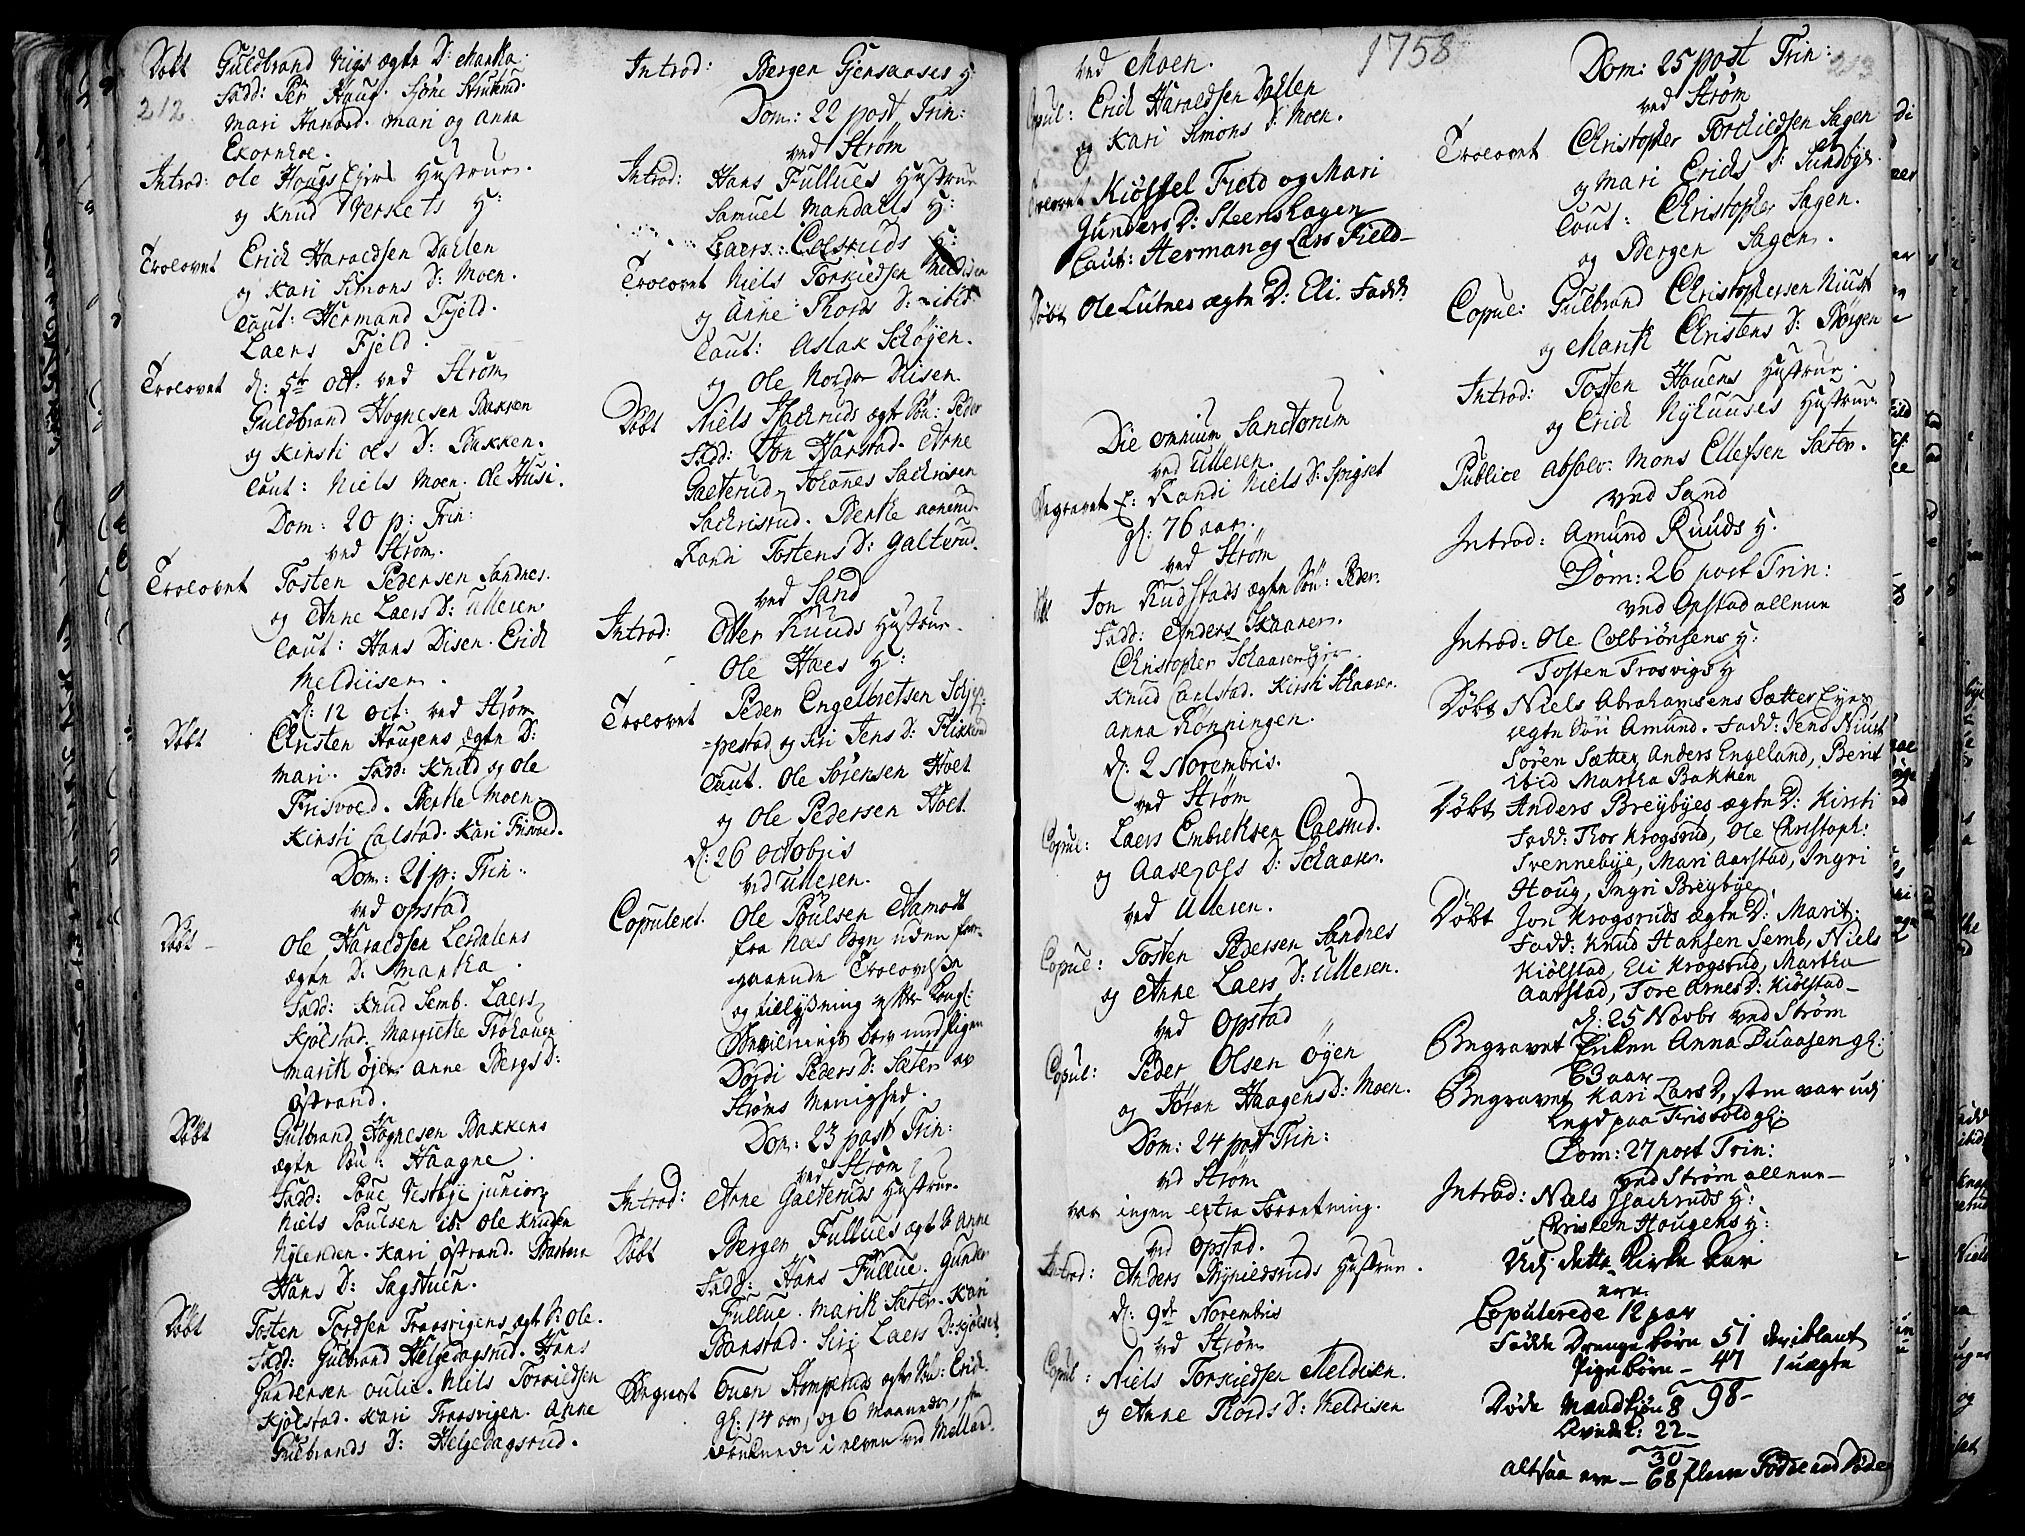 212
Døbt Guldbrand Nigs ægte D: Martha
Fadd: Per Haug. Sjöne
Mari Hanord. Mari og Anna
Ekornhoe.
Introd: Ole Hougs Ejers Hustrue.
og Knud Verkets H:
Trolovet Erich Haraldsen Dahlen
og Kari Simons D: Moen.
Caut: Hermand Fjeld.
Laers Fjeld.
Trolovet d: 5te Oct: ved Strøm
Guldbrand Hognesen Bakken
og Kirsti Ols D: Bakken.
Caut: Niels Moen. Ole Husi.
Dom: 20 p: Trin:
ved Strøm.
Trolovet Tosten Pedersen Sandnes.
og Anne Laers D: Ullesen
Caut: Hans Disen. Erich
Meldiisen.
d: 12 Oct: ved Strøm
Døbt Christen Haugens ægte D:
Mari. Fadd: Knud og Ole
Frisvold. Berthe Moen.
Kirsti Calstad. Kari Frisvold.
Dom: 21 p: Trin:
ved Opstad
Døbt - Ole Haraldsen Lerdalens
ægte D: Martha.
Fadd: Knud Semb. Laers
Kjölstad. Margrethe Trohauen
Marith Öjer. Anne Bergs D:
Østrand.
Døbt Gulbrand Hognesen Bakkens
ægte Sön: Haagne.
Fadd: Poul Vestbye junior
Niels Poulsen ib: Ole Knudsen
Nylenden. Kari Østrand. Barbara
Hans D: Sagstuen.
Døbt Tosten Tordsen Traasvigens ægt S: Ole.
Fadd: Gulbrand Helgedagsrud. Hans
Gundersen Oulie. Niels Torkildsen
Kjölstad. Kari Traasvigen. Anne
Gulbrands D: Helgedagsrud.
Introd: Bergen Gjersaases H:
Dom: 22 post Trin:
ved Strøm
Introd: Hans Fullues Hustrue
Samuel Mandaels H:
Laers: Colsruds H:
Trolovet Niels Torkieldsen Meldisen
og Anne Thords D: ibid
Caut: Aslak Schöyen.
og Ole Nordre Disen.
Døbt Niels Sackruds ægte Sön: Peder
Fadd: Jon Harstad. Arne
Galterud. Johannes Sachrisen
Sachristrud. Berthe
Randi Tostens D: Galterud.
ved Sand
Introd: Oller Ruuds Hustrue.
Ole Haes H:
Trolovet Peder Engelbretsen Schjep-
pestad og Siri Jens D: Flikkerud
Caut. Ole Sörensen Hoel
og Ole Pedersen Hoel.
d: 26 Octobris
ved Ullesen.
Copuleret. Ole Poulsen Aamodt
fra Næs Sogn uden for-
gaaende Trolovelse
og tillysning efter Kongl:
Bevilnings brev med Pigen
Dordi Peders D: Sæter av
Strøms Menighed.
Dom: 23 post Trin:
ved Strøm
Introd: Arne Galteruds Hustrue.
Døbt Bergen Fullues ægt D: Anne
Fadd: Hans Fullue. Gunder
Fullue. Marith Sæter. Kari
Banstad. Siri Laers D: Kjölset
Begravet Ouen Stomperuds ægte Sön: Erich.
gl: 14 aar, og 6 Maaneder, som
druknede i elven ved Mellard.
1758
ved Moen.
Copul: Erich Haraldsen Dahlen
og Kari Simons D: Moen.
Trolovet Kiöstel Field og Mari
Gunders D: Steenshagen
Caut: Herman og Lars Field-
Døbt Ole Lutnes ægte D: Eli. Fadd:
Die omnium Sanctorum
ved Ullesen.
Begravet E: Randi Niels D: Spigset
gl: 76 aar.
ved Strøm
Døbt Jon Rudstads ægte Sön: Peder.
Fadd: Anders Skaaren.
Christopher Schaaren
Knud Carlstad. Kirsti Schaaren.
Anna Rønningen.
d: 2 Novembris.
ved Strøm
Copul: Laers Embrethsen Colsrud.
og Aase Ols D: Schaaren.
ved Ullesen.
Copul: Tosten Pedersen Sandnes
og Anne Laers D: Ullesen.
ved Opstad
Copul: Peder Olsen Öyen
og Jöran Haagens D: Moen.
Dom: 24 post Trin:
ved Strøm
var ingen extra Forretning.
ved Opstad.
Introd: Anders Bynildsruds Hustrue.
d: 9de Novembris
ved Strøm
Copul: Niels Torkieldsen Meldisen.
og Anne Thords D: Meldisen
213
Dom: 25 post Trin:
ved Strøm
Trolovet Christopher Torchildsen Sagen
og Mari Erichs D: Sundbye.
Caut: Christopher Sagen.
og Bergen Sagen.
Copul: Gulbrand Christophersen Niust
og Marith Christens D: Börgen
Introd: Tosten Hauens Hustrue.
og Erich Nyhuuses Hustrue.
Publice absolv: Mons Ellefsen Sæter.
ved Sand
Introd: Amund Ruuds H:
Dom: 26 post Trin:
ved Opstad allene
Introd: Ole Colbiörnsens H:
Tosten Trosvigs H
Døbt Niels Abrahamsens Sætter Eyes
ægte Sön Amund. Fadd: Jens Niust
Sören Sætter, Anders Engeland, Berit
ibid Martha Bakken
Døbt Anders Breybyes ægte D: Kirsti
Fadd: Thor Krogsrud, Ole Christoph:
Svennebye, Mari Aarstad, Ingri
Houg, Ingri Breybye
Døbt Jon Krogsruds ægte D: Marit:
Fadd: Knud Hansen Semb, Niels
Kiölstad, Eli Krogsrud, Martha
Aarstad, Tore Arnes D: Kiölstad-
d: 25 Novbr ved Strøm
Begravet Enken Anna Duaasen gl:
63 aar
Begravet Kari Lars D, som var udj
Legd paa Frisvold gl:
Dom: 27 post Trin:
ved Strøm allene-
Introd: Niels Sackruds H:
Christen Hougens H:
Udj dette Kirke Aar
ere
Copulerede 12 par
Födde Drengebörn 51 deriblant
Pigebörn - 47 1 uægte
98-
Døde Mandkiön 8
Qvindk: 22-
30-
altsaa ere - 68 flere Födde end Døde